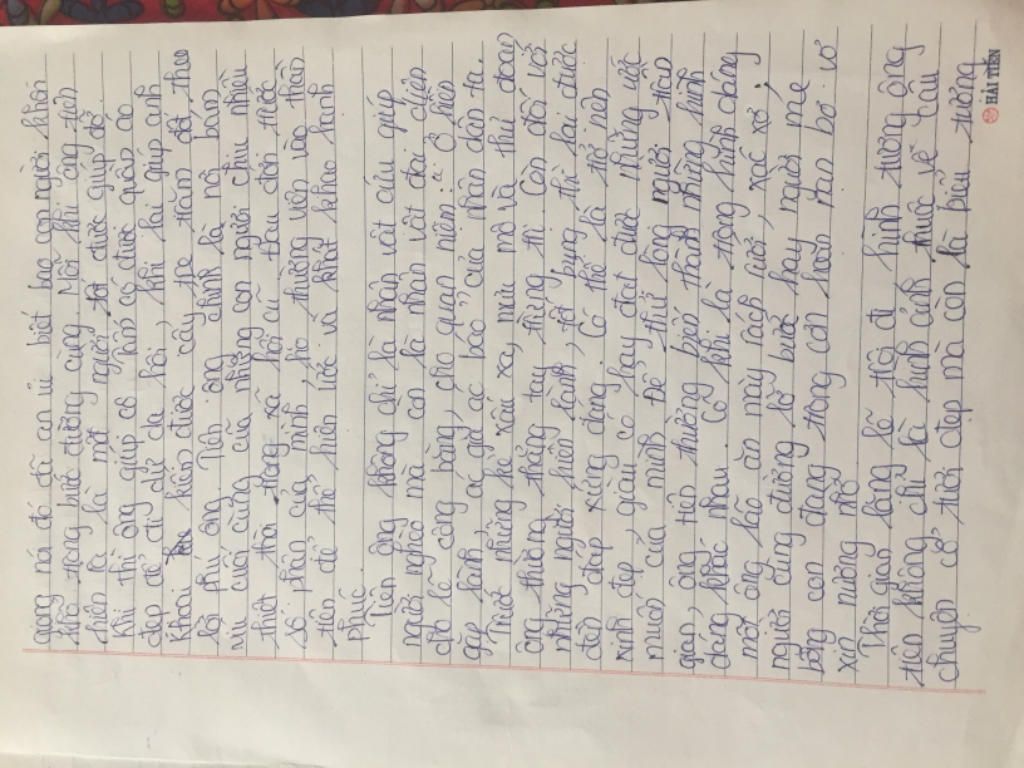 giọng nói đó đã an ủi biết bao con người khốn
khổ trong bước đường cùng. Mỗi khi ông tiên
hiện ra là mỗi người tốt được giúp đỡ.
Khi thì ông giúp cô Tấm có được quần áo
đẹp để đi dự dạ hội, khi lại giúp anh
Khoai kiếm được cây tre trăm đốt theo
lời phú ông. Tiên ông chính là nơi bám
víu cuối cùng của những con người chịu nhiều
thiệt thòi trong xã hội cũ. Đau đớn trước
số phận của mình, họ thường vên vào thần
tiên để thổ hiên ước và khát khao hạnh
phúc
Tiên ông không chỉ là nhân vật cứu giúp
người nghèo mà còn là nhân vật đại diện
cho lẽ công bằng, cho quan niệm "ở hiền
gặp lành, ác giả ác báo" của nhân dân ta.
Trước những kẻ xấu xa, mưu mô và thủ đoạn
ông thường thẳng tay trừng trị. Còn đối với
những người hiền lành, tốt bụng thì lại được
đền đáp xứng đáng. Có thể là trở nên
xinh đẹp, giàu có hay đạt được những ước
muốn của mình. Để thử lòng người trần
gian, ông tiên thường biến thành những hình
dáng khác nhau. Có khi là trong hình dáng
một ông lão ăn mày rách rưới, xác xơ,
người cùng đường lỡ bước hay người mẹ
bồng con đang trong cơn hoạn nạn bơ vơ
xin nương nhờ
Thời gian lặng lẽ trôi đi hình tượng ông
tiên không chỉ là hình ảnh thuộc về câu
chuyện cổ tươi đẹp mà còn là biểu tượng
HẢI TIẾN